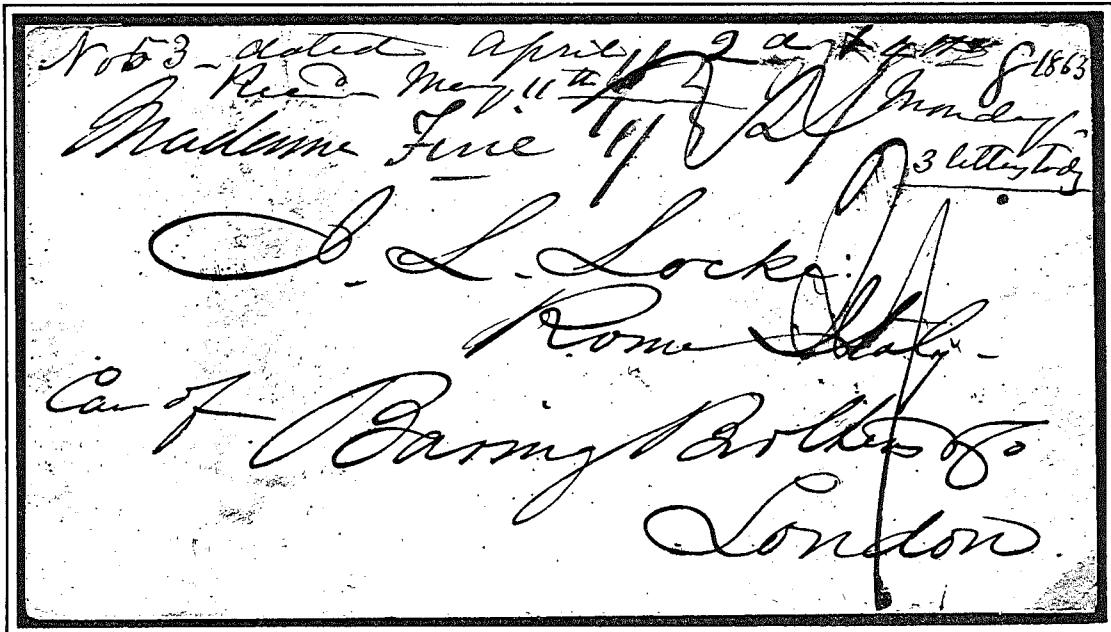 No 53 - dated April 2d 1863
Rec'd May 11th Monday
Madame Firie
3 letters tody
J. L. Locke:
Rome Italy -
Care of Baring Brothers & Co
London.